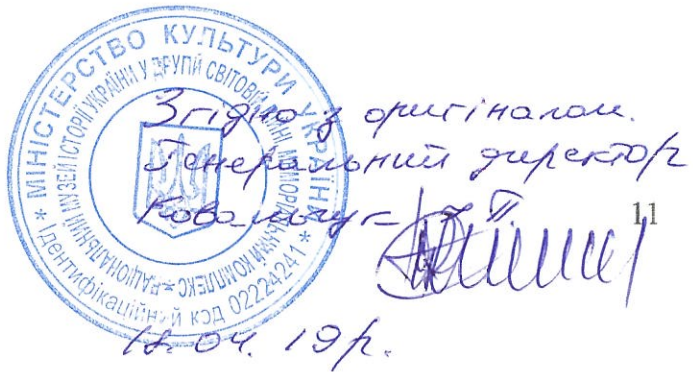 * МІНІСТЕРСТВО КУЛЬТУРИ УКРАЇНИ *
Ідентифікаційний код 02224241
НАЦІОНАЛЬНИЙ МУЗЕЙ ІСТОРІЇ УКРАЇНИ У ДРУГІЙ СВІТОВІЙ ВІЙНІ МЕМОРІАЛЬНИЙ КОМПЛЕКС
Згідно з оригіналом.
Генеральний директор
Ковальчук
11
04. 19р.